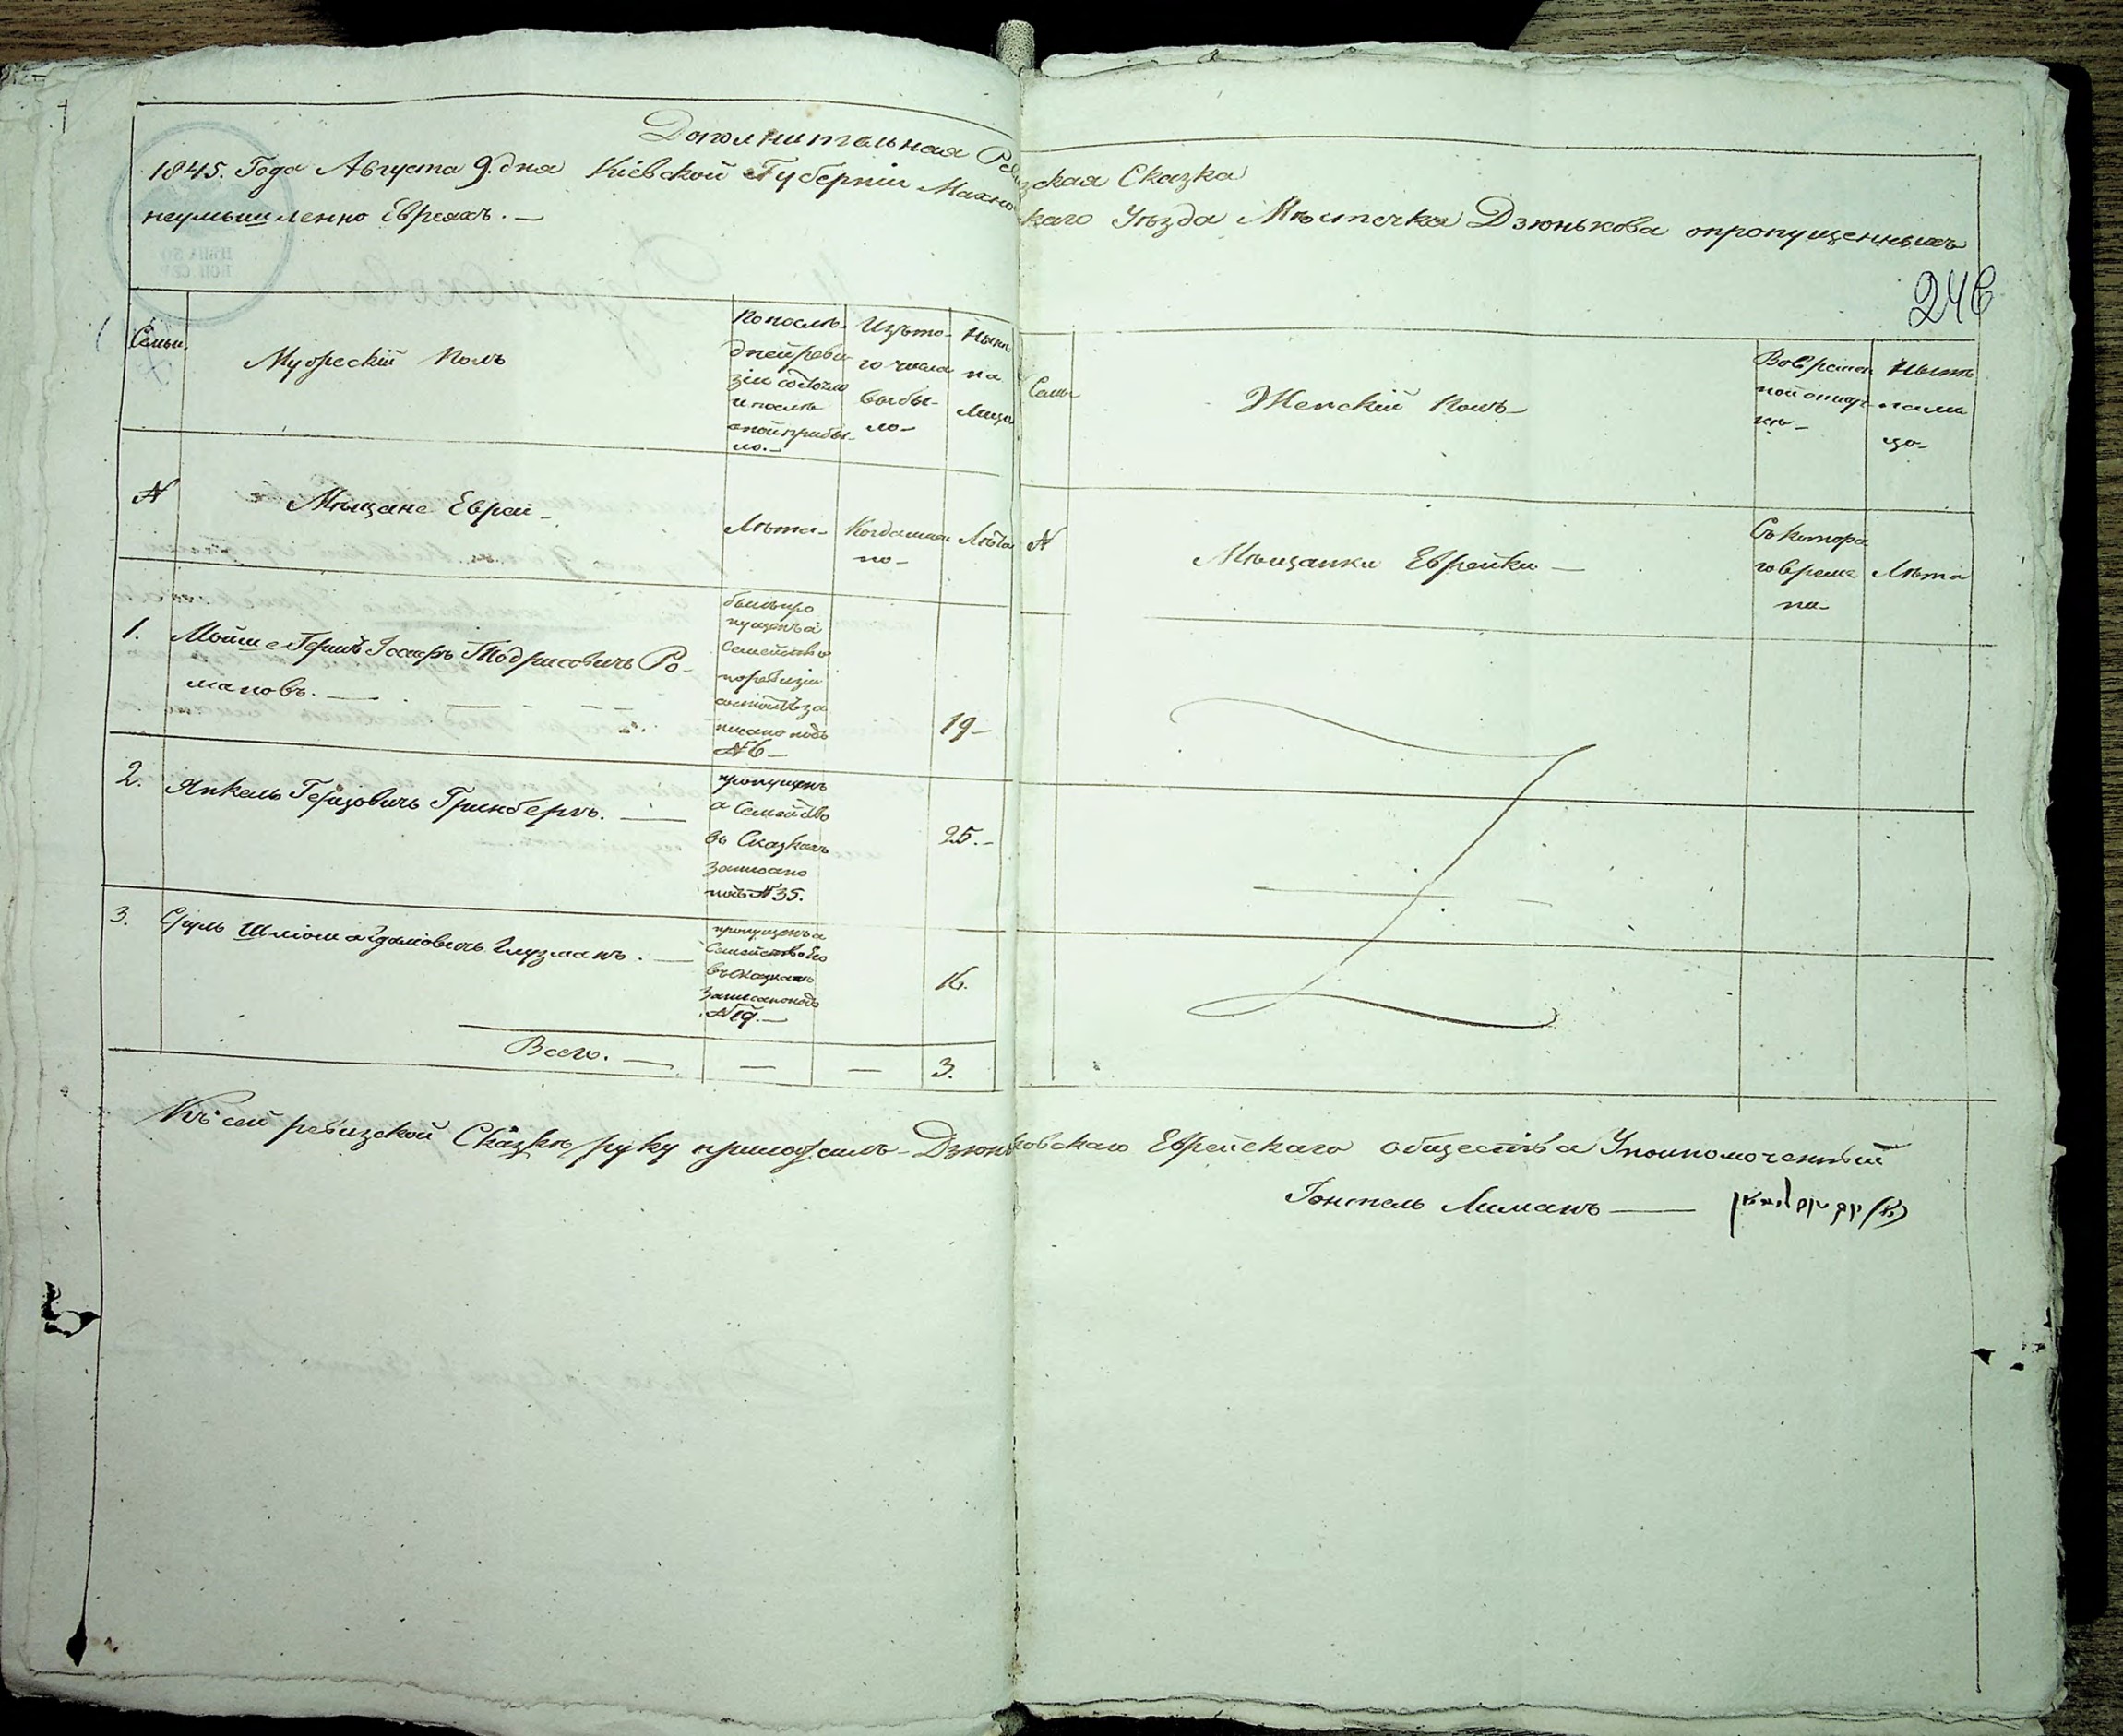 Дополнительная Ревизская Сказка
1845. Года Августа 9. дня Кіевской Губерніи Махновскаго Уѣзда Мѣстечка Дзюнькова опропущенныхъ
неумышленно Евреяхъ. —
246
Семьи
Мужескій Полъ
Попослѣ-
дней реви
зіи состояло
и послѣ
оной прибы-
ло. —
Изъ то-
го числа
выбы-
ло —
Нынѣ
на
Лицо
Семьи
Женскій Полъ —
Во Времен
ной отлуч-
кѣ —
Нынѣ
нали
цо —
№
Мѣщане Евреи —
Лѣта —
Когда имен
но —
Лѣта
№
Мѣщанки Еврейки —
Съ котора
го време
ни —
Лѣта
1.
Мойше Гершъ Іосифъ Тодрисовичъ Ро-
мановъ. —
былъ про
пущенъ а
Семейство
по ревизіи
записано подъ
№ 6 —
19 —
2.
Янкель Герцовичъ Гринбергъ. —
пропущенъ
а Семейство
въ Сказкахъ
записано
подъ № 35.
25. —
3.
Сруль Шліома Глузманъ. —
пропущенъ а
Семейство Его
въ Сказкахъ
записано подъ
№ 19. —
16.
Всего. —
—
—
3.
Къ сей ревизской Сказкѣ руку приложилъ — Дзюньковскаго Еврейскаго общества Уполномоченный
Лиманъ —